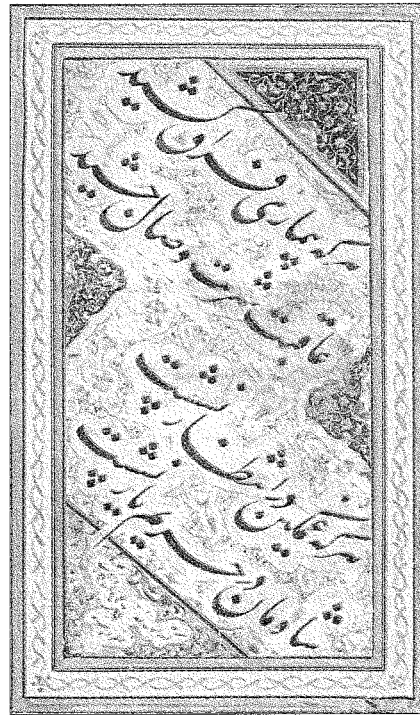 هر که بیماری فراق کشید
عاقبت شربت وصال چشید
هر که غمگین در انتظار نشست
شادمان در حریم یار نشست